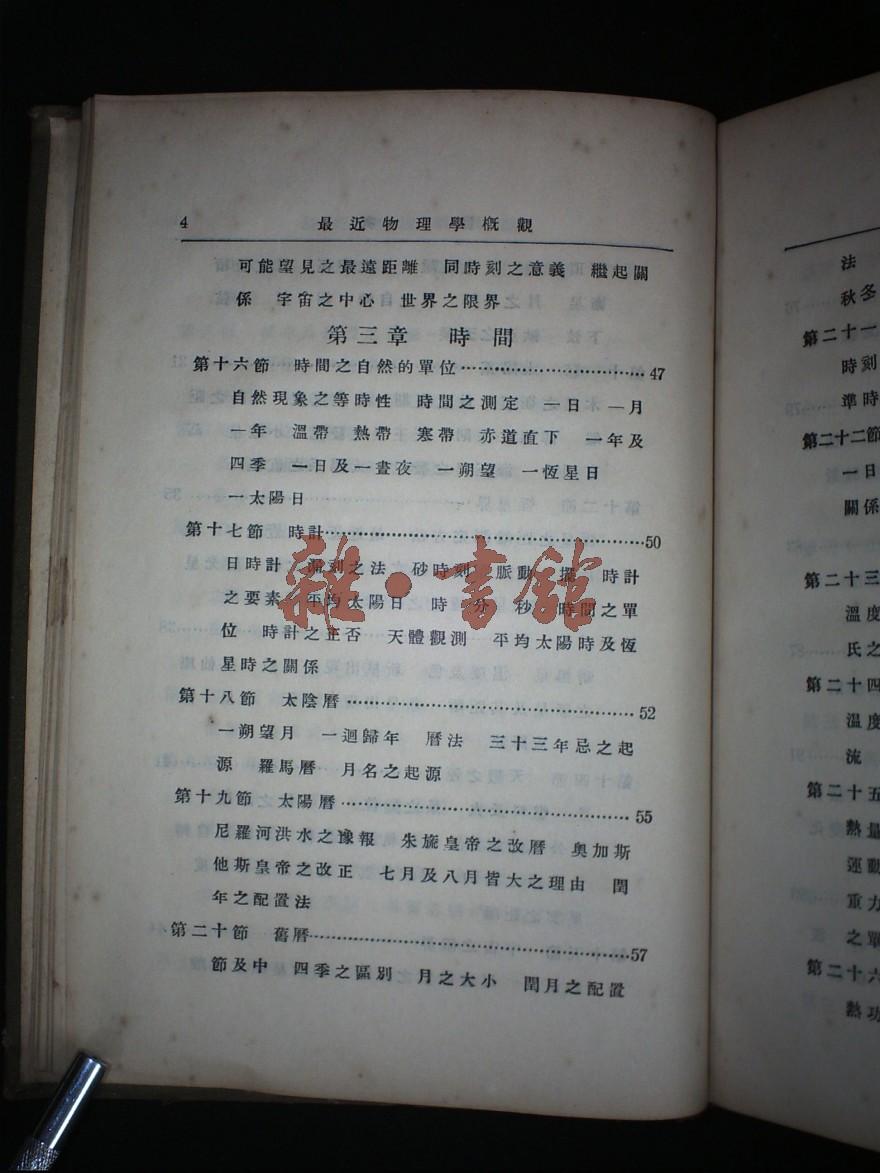 4 最近物理學概觀
可能望見之最遠距離 同時刻之意義 繼起關
係 宇宙之中心 世界之限界
第三章 時間
第十六節 時間之自然的單位……47
自然現象之等時性 時間之測定 一日 一月
一年 溫帶 熱帶 寒帶 赤道直下 一年及
四季 一日及一晝夜 一朔望 一恆星日
一太陽日
第十七節 時計……50
日時計 漏刻之法 砂時刻 脈動 擺 時計
之要素 平均太陽日 時 分 秒 時間之單
位 時計之正否 天體觀測 平均太陽時及恆
星時之關係
第十八節 太陰曆……52
一朔望月 一迴歸年 曆法 三十三年忌之起
源 羅馬曆 月名之起源
第十九節 太陽曆……55
尼羅河洪水之豫報 朱旋皇帝之改曆 奧加斯
他斯皇帝之改正 七月及八月皆大之理由 閏
年之配置法
第二十節 舊曆……57
節及中 四季之區別 月之大小 閏月之配置
雜·書館
法
秋冬
第二十一
時刻
準時
第二十二節
一日
關係
第二十三
溫度
氏之
第二十四
溫度
流
第二十五
熱量
運動
重力
之單
第二十六
熱功